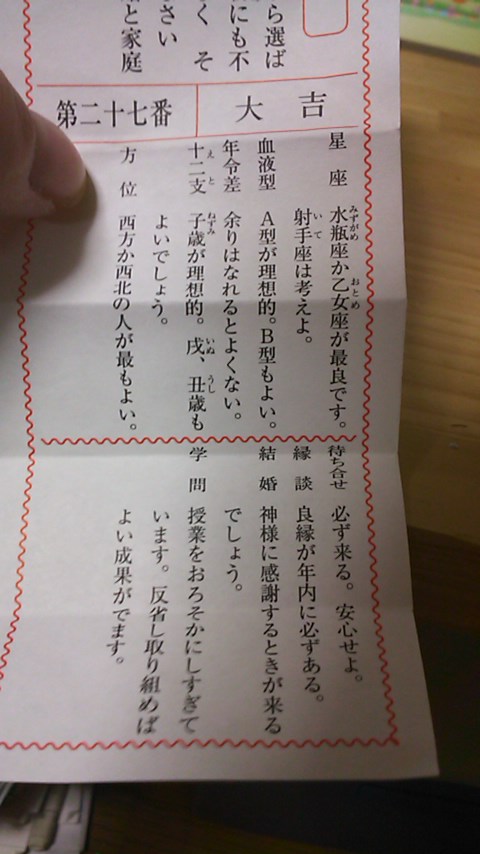 ら選ば
にも不
く そ
さい
と家庭
大吉
第二十七番
星座 水瓶座か乙女座が最良です。
射手座は考えよ。
血液型 A型が理想的。B型もよい。
年令差 余りはなれるとよくない。
十二支 子歳が理想的。戌、丑歳も
よいでしょう。
方位 西方か西北の人が最もよい。
待ち合せ 必ず来る。安心せよ。
縁談 良縁が年内に必ずある。
結婚 神様に感謝するときが来る
でしょう。
学問 授業をおろそかにしすぎて
います。反省し取り組めば
よい成果がでます。